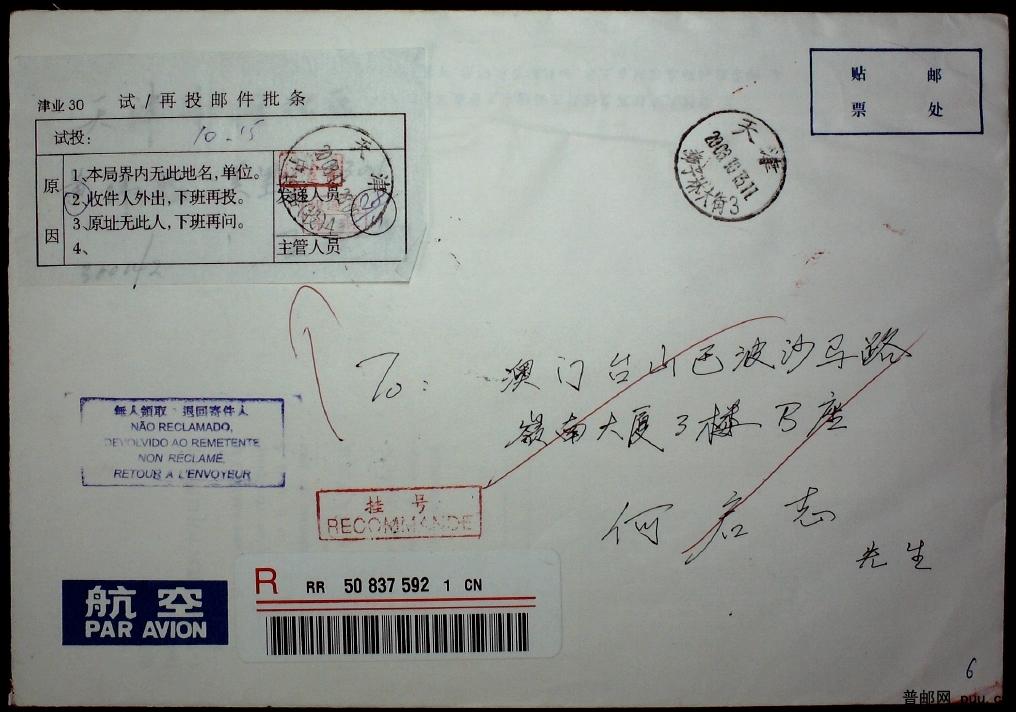 津业30 试/再投邮件批条
试投： 10-15
原因
1、本局界内无此地名，单位。
2、收件人外出，下班再投。
3、原址无此人，下班再问。
4、
发递人员
主管人员
贴 邮
票 处
天津
To: 澳门台山巴波沙马路
嶺南大厦3樓B座
何 志
先生
無人領取 退回寄件人
NÃO RECLAMADO,
DEVOLVIDO AO REMETENTE
NON RÉCLAMÉ,
RETOUR A L'ENVOYEUR
挂号
RECOMMANDE
R RR 50 837 592 1 CN
航空
PAR AVION
6
普邮网